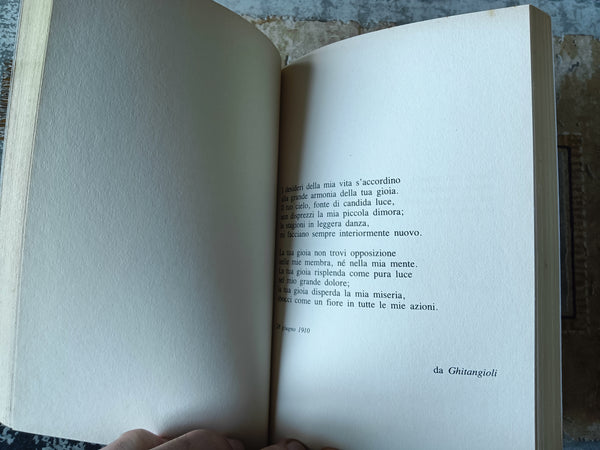 I desideri della mia vita s'accordino
alla grande armonia della tua gioia.
Il tuo cielo, fonte di candida luce,
non disprezzi la mia piccola dimora;
le stagioni in leggera danza,
mi facciano sempre interiormente nuovo.
La tua gioia non trovi opposizione
nelle mie membra, né nella mia mente.
La tua gioia risplenda come pura luce
sul mio grande dolore;
la tua gioia disperda la mia miseria,
sbocci come un fiore in tutte le mie azioni.
giugno 1910
da Ghitangioli